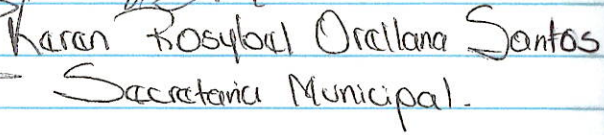 Karen Rosybel Orellana Santos
- Secretaria Municipal.